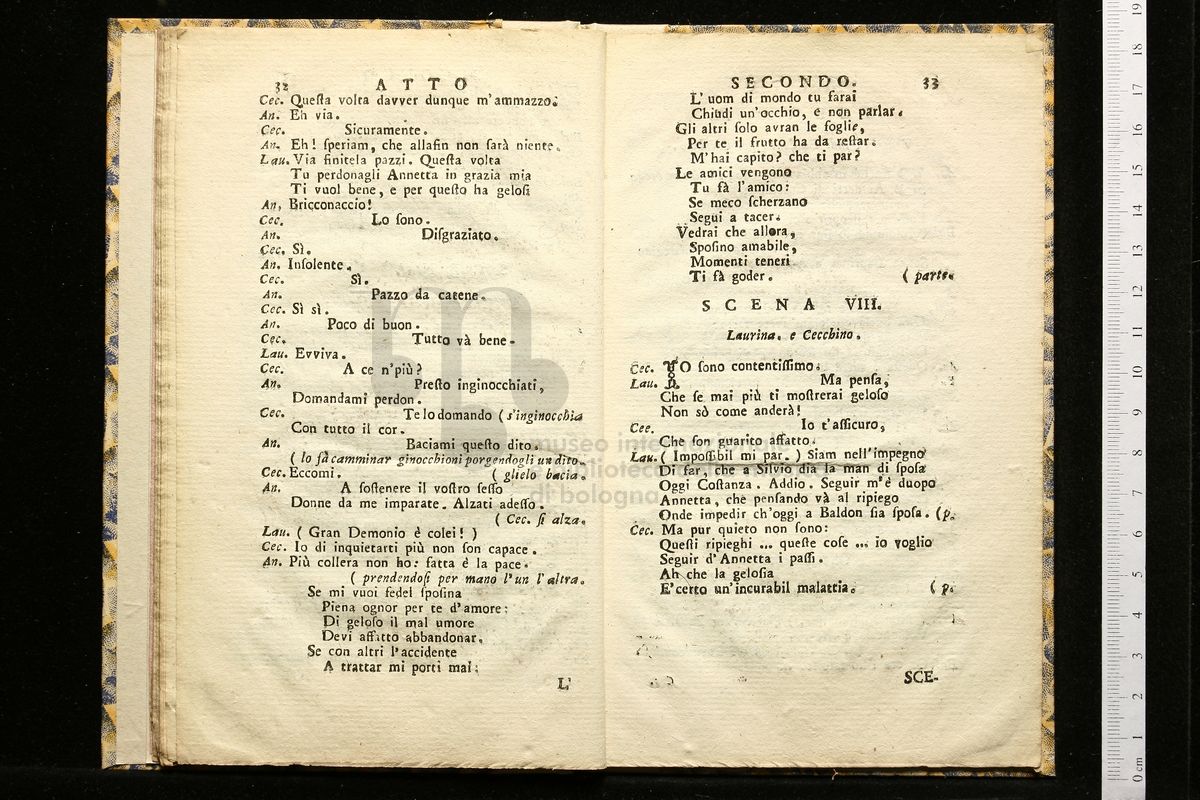 32 ATTO
Cec. Queſta volta davver dunque m'ammazzo.
An. Eh via.
Cec. Sicuramente.
An. Eh! ſperiam, che allafin non ſarà niente.
Lau. Via finitela pazzi. Queſta volta
Tu perdonagli Annetta in grazia mia
Ti vuol bene, e per queſto ha geloſi
An. Bricconaccio!
Cec. Lo ſono.
An. Diſgraziato.
Cec. Sì.
An. Inſolente.
Cec. Sì.
An. Pazzo da catene.
Cec. Sì sì.
An. Poco di buon.
Cec. Tutto và bene.
Lau. Evviva.
Cec. A ce n'più?
An. Preſto inginocchiati,
Domandami perdon.
Cec. Te lo domando (s'inginocchia
Con tutto il cor.
An. Baciami queſto dito.
(lo fà camminar ginocchioni porgendogli un dito.
Cec. Eccomi. (glielo bacia.
An. A ſoſtenere il voſtro ſeſſo
Donne da me imparate. Alzati adeſſo.
(Cec. ſi alza.
Lau. (Gran Demonio è colei!)
Cec. Io di inquietarti più non ſon capace.
An. Più collera non ho: fatta è la pace.
(prendendoſi per mano l'un l'altra.
Se mi vuoi fedel ſpoſina
Piena ognor per te d'amore:
Di geloſo il mal umore
Devi affatto abbandonar.
Se con altri l'accidente
A trattar mi porti mai;
L'
SECONDO. 33
L'uom di mondo tu farai
Chiudi un'occhio, e non parlar.
Gli altri ſolo avran le foglie,
Per te il frutto ha da reſtar.
M'hai capito? che ti par?
Le amici vengono
Tu fà l'amico:
Se meco ſcherzano
Segui a tacer.
Vedrai che allora,
Spoſino amabile,
Momenti teneri
Ti fà goder. (parte.
SCENA VIII.
Laurina. e Cecchino.
Cec. IO ſono contentiſſimo.
Lau. Ma penſa,
Che ſe mai più ti moſtrerai geloſo
Non sò come anderà!
Cee. Io t'aſſicuro,
Che ſon guarito affatto.
Lau. (Impoſſibil mi par.) Siam nell'impegno
Di far, che a Silvio dia la man di ſpoſa
Oggi Coſtanza. Addio. Seguir m'è duopo
Annetta, che penſando và al ripiego
Onde impedir ch'oggi a Baldon ſia ſpoſa. (p.
Cec. Ma pur quieto non ſono:
Queſti ripieghi ... queſte coſe ... io voglio
Seguir d'Annetta i paſſi.
Ah che la geloſia
E' certo un'incurabil malattia. (p.
SCE-
museo inter
biblioteca
di bologna